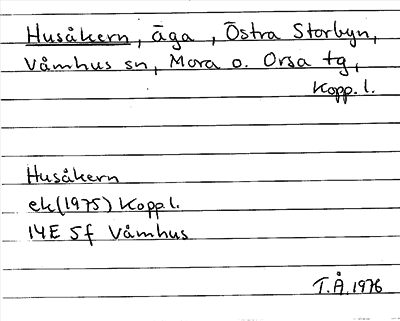 Husåkern, äga, Östra Storbyn,
Våmhus sn, Mora o. Orsa tg,
Kopp. l.
Husåkern
ek (1975) Kopp l.
14E 5f Våmhus
T.Å. 1976